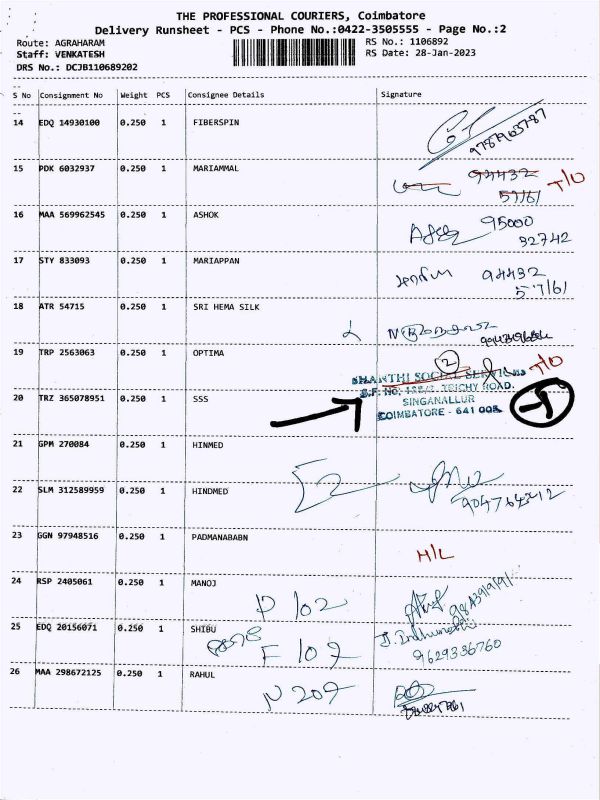 THE PROFESSIONAL COURIERS, Coimbatore
Delivery Runsheet - PCS - Phone No.:0422-3505555 - Page No.:2
Route: AGRAHARAM
RS No.: 1106892
Staff: VENKATESH
RS Date: 28-Jan-2023
DRS No.: DCJB110689202
S No Consignment No Weight PCS Consignee Details Signature
14 EDQ 14930100 0.250 1 FIBERSPIN
9787963787
15 PDK 6032937 0.250 1 MARIAMMAL 94432 T/O
57/61
16 MAA 569962545 0.250 1 ASHOK 95000
32742
17 STY 833093 0.250 1 MARIAPPAN 94432
57/61
18 ATR 54715 0.250 1 SRI HEMA SILK
19 TRP 2563063 0.250 1 OPTIMA 2 T/O
SHANTHI SOCIAL SERVICES
TRICHY ROAD.
20 TRZ 365078951 0.250 1 SSS SINGANALLUR
COIMBATORE - 641 005
21 GPM 270084 0.250 1 HINMED
22 SLM 312589959 0.250 1 HINDMED
23 GGN 97948516 0.250 1 PADMANABABN
H/L
24 RSP 2405061 0.250 1 MANOJ
D 102
25 EDQ 20156071 0.250 1 SHIBU
F 107
9629336760
26 MAA 298672125 0.250 1 RAHUL
N 207